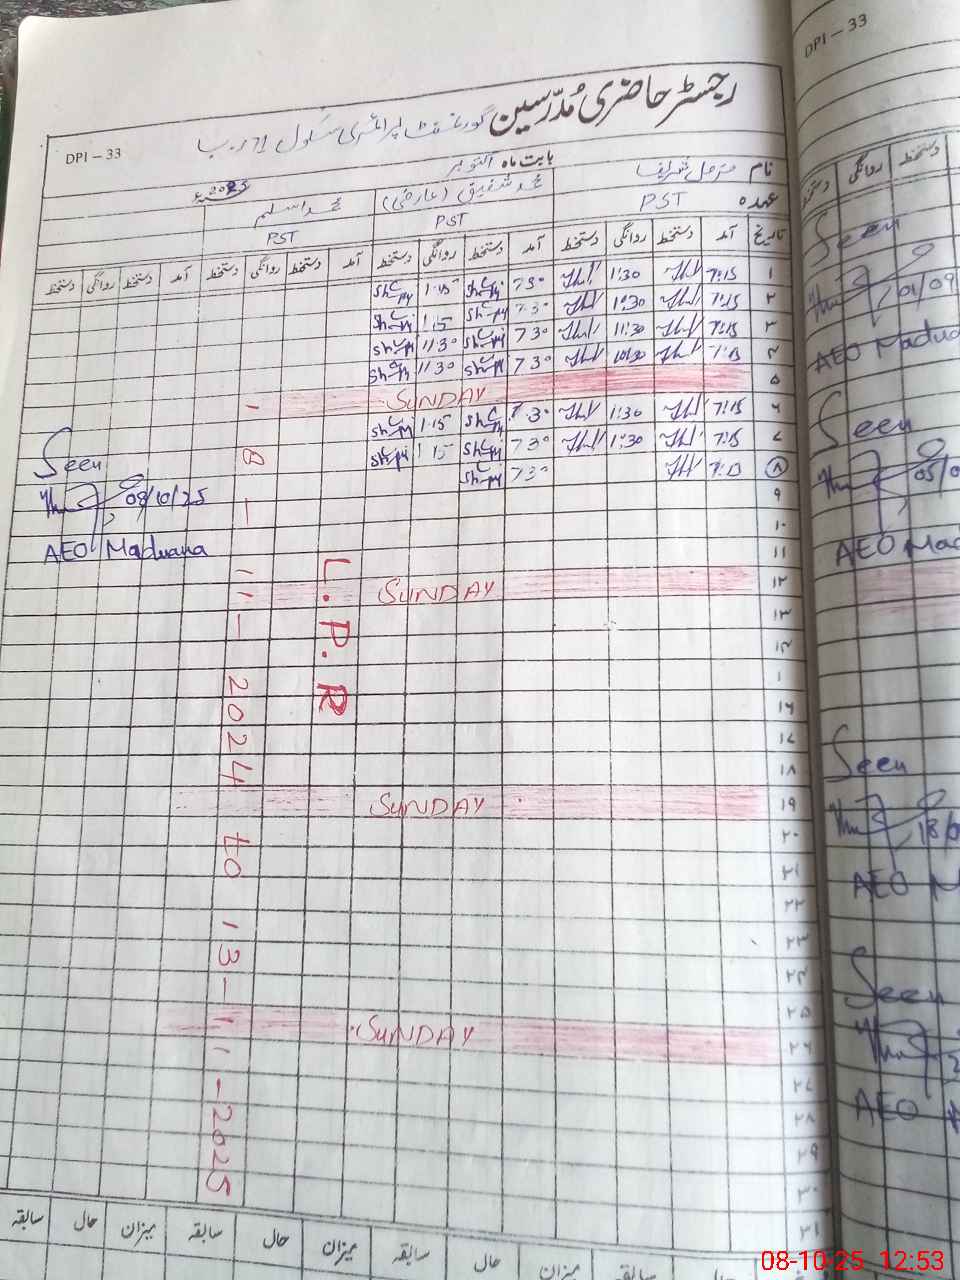 DPI – 33
رجسٹر حاضری مُدرّسین گورنمنٹ پرائمری سکول 71 ر۔ب
بابت ماہ اکتوبر 2025ء
نام
محمد شفیق (عارضی)
محمد اسلم
عہدہ PST PST PST
تاریخ آمد دستخط روانگی دستخط آمد دستخط روانگی دستخط آمد دستخط روانگی دستخط آمد دستخط روانگی دستخط
۱ 7:15 1:30 7 30 1.15
۲ 7:15 1:30 7.30 1.15
۳ 7:15 11:30 7 30 11.30
۴ 7:15 7 30 11.30
۵ SUNDAY
۶ 7:15 1:30 7.30 1.15
۷ 7:15 1:30 7 30 1 15
۸ 7:15 7.30
۹
۱۰
۱۱
۱۲ SUNDAY
۱۳
۱۴
۱
۱۶
۱۷
۱۸
۱۹ SUNDAY
۲۰
۲۱
۲۲
۲۳
۲۴
۲۵
۲۶ SUNDAY
۲۷
۲۸
۲۹
۳۰
۳۱
L.P.R
11 – 2024 to 13 – 11 – 2025
Seen
08/10/25
AEO Maduana
میزان سابقہ حال میزان سابقہ حال میزان سابقہ حال سابقہ
DPI – 33
دستخط روانگی دستخط
Seen
01/09
AEO Madua
Seen
05/0
AEO Mad
Seen
18/0
AEO M
Seen
AEO
08-10-25 12:53